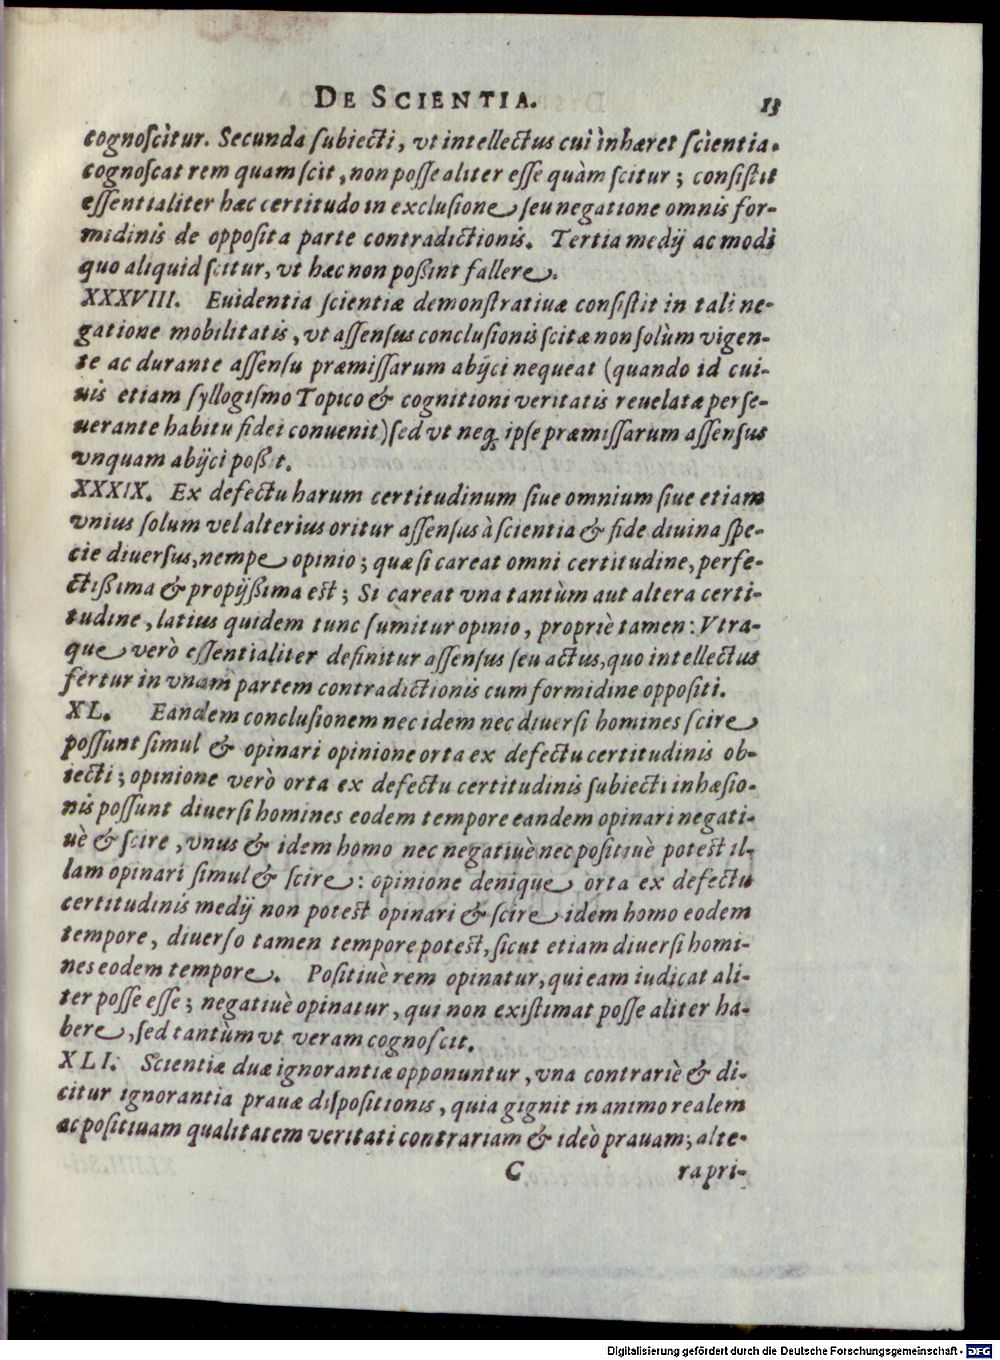 DE SCIENTIA. 13
cognoſcitur. Secunda ſubiecti, vt intellectus cui inhæret ſcientia,
cognoſcat rem quam ſcit, non poſſe aliter eſſe quàm ſcitur; conſiſtit
eſſentialiter hæc certitudo in excluſione ſeu negatione omnis for-
midinis de oppoſita parte contradictionis. Tertia medij ac modi
quo aliquid ſcitur, vt hæc non poßint fallere.
XXXVIII. Euidentia ſcientiæ demonſtratiuæ conſiſtit in tali ne-
gatione mobilitatis, vt aſſenſus concluſionis ſcitæ non ſolùm vigen-
te ac durante aſſenſu præmiſſarum abijci nequeat (quando id cui-
uis etiam ſyllogiſmo Topico & cognitioni veritatis reuelatæ perſe-
uerante habitu fidei conuenit) ſed vt neq; ipſe præmiſſarum aſſenſus
vnquam abijci poßit.
XXXIX. Ex defectu harum certitudinum ſiue omnium ſiue etiam
vnius ſolum vel alterius oritur aſſenſus à ſcientia & fide diuina ſpe-
cie diuerſus, nempe opinio; quæ ſi careat omni certitudine, perfe-
ctißima & propijßima est; Si careat vna tantùm aut altera certi-
tudine, latius quidem tunc ſumitur opinio, propriè tamen: Vtra-
que verò eſſentialiter definitur aſſenſus ſeu actus, quo intellectus
fertur in vnam partem contradictionis cum formidine oppoſiti.
XL. Eandem concluſionem nec idem nec diuerſi homines ſcire
poſſunt ſimul & opinari opinione orta ex defectu certitudinis ob-
iecti; opinione verò orta ex defectu certitudinis ſubiecti inhæſio-
nis poſſunt diuerſi homines eodem tempore eandem opinari negati-
uè & ſcire, vnus & idem homo nec negatiuè nec poſitiuè potest il-
lam opinari ſimul & ſcire: opinione denique orta ex defectu
certitudinis medij non potest opinari & ſcire idem homo eodem
tempore, diuerſo tamen tempore potest, ſicut etiam diuerſi homi-
nes eodem tempore. Poſitiuè rem opinatur, qui eam iudicat ali-
ter poſſe eſſe; negatiuè opinatur, qui non exiſtimat poſſe aliter ha-
bere, ſed tantùm vt veram cognoſcit.
XLI. Scientiæ duæ ignorantiæ opponuntur, vna contrariè & di-
citur ignorantia prauæ diſpoſitionis, quia gignit in animo realem
ac poſitiuam qualitatem veritati contrariam & ideò prauam; alte-
C rapri-
Digitalisierung gefördert durch die Deutsche Forschungsgemeinschaft - DFG